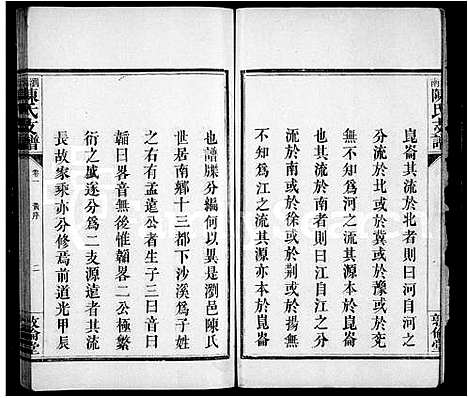 崑崙其流於北者則曰河自河之
分流於北或於冀或於豫或於兗
無不知為河之流其源亦本於崑
崙其流於南者則曰江自江之分
流於南或於徐或於荆或於揚無
不知為江之流其源亦本於崑崙
也譜牒分編何以異是瀏邑陳氏
世居南鄉十三都下沙溪為子姓
之右有孟遠公者生子三曰音曰
韜曰畧音無後惟韜畧二公極繁
衍之盛遂分為二支源遠者其流
長故家乘亦分修焉前道光甲辰
陳氏支譜
卷一
黃序
二
敦倫堂